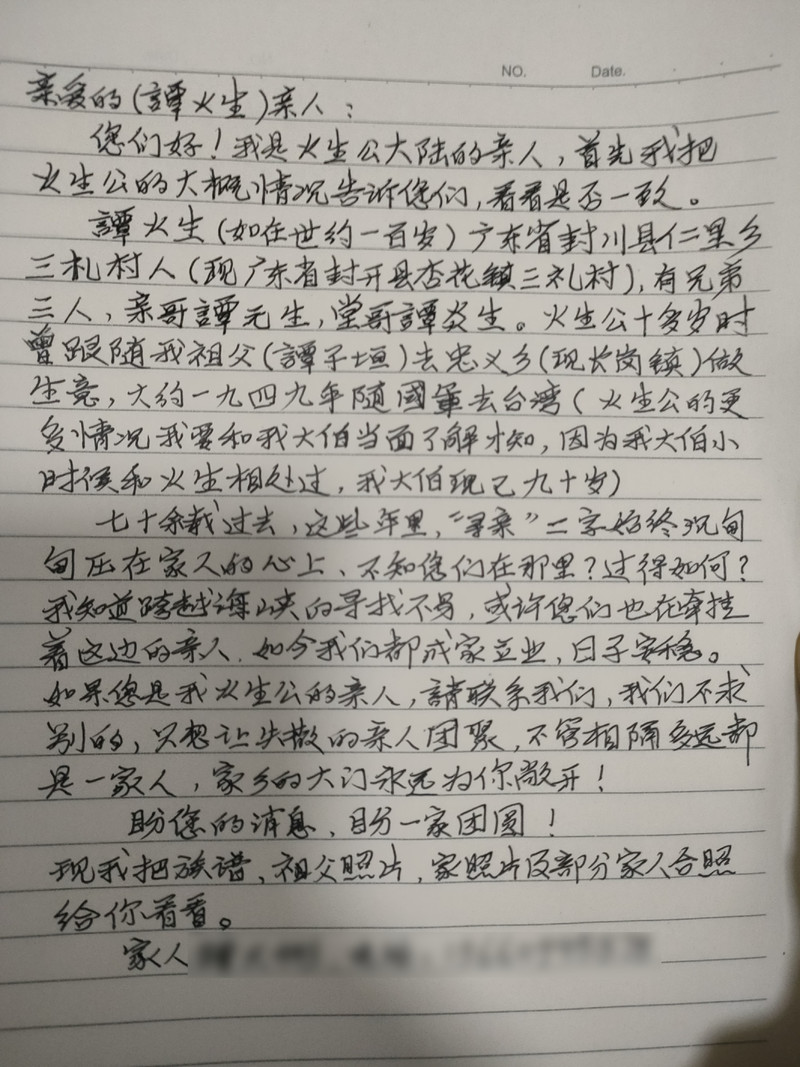 NO. Date.
亲爱的(譚火生)亲人：
您们好！我是火生公大陆的亲人，首先我把
火生公的大概情况告诉您们，看看是否一致。
譚火生(如在世约一百岁)广东省封川县仁里乡
三礼村人(现广东省封开县杏花镇三礼村)，有兄弟
三人，亲哥譚元生，堂哥譚炎生。火生公十多岁时
曾跟随我祖父(譚子垣)去忠义乡(现长岗镇)做
生意，大约一九四九年随國軍去台湾(火生公的更
多情况我要和我大伯当面了解才知，因为我大伯小
时侯和火生相处过，我大伯现已九十岁)
七十余载过去，这些年里，“寻亲”二字始终沉甸
甸压在家人的心上、不知您们在那里？过得如何？
我知道跨越海峡的寻找不易，或许您们也在牵挂
着这边的亲人.如今我们都成家立业，日子安稳。
如果您是我火生公的亲人，請联系我们，我们不求
别的，只想让失散的亲人团聚，不管相隔多远都
是一家人，家乡的大门永远为你敞开！
盼您的消息、盼一家团圆！
现我把族谱、祖父照片，家照片及部分家人合照
给你看看。
家人